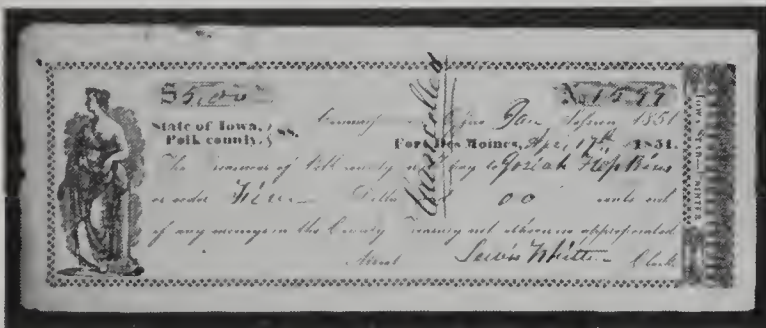 $5.00 No 1599
State of Iowa, } ss. Jan 1851
Polk county. } Fort Des Moines, April 17th 1851.
The Treasurer of Polk county will pay to Josiah Hopkins
or order Five Dollars 00 cents out
of any moneys in the County Treasury not otherwise appropriated
Attest Lewis Whitten Clerk
Cancelled